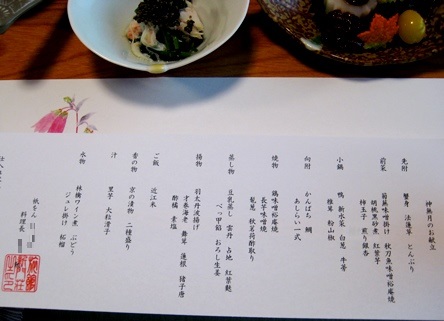 神無月のお献立
先附
蟹身 法蓮草 とんぶり
前菜
菊蕪味噌掛け 秋刀魚味噌裕庵焼
胡桃黒砂煮 紅葉芋
柿玉子 煎り銀杏
小鍋
鴨 新水菜 白葱 牛蒡
椎茸 粉山椒
向附
かんぱち 鯛
あしらい一式
焼物
鶏味噌裕庵焼
長芋味噌焼
龍葱 秋茗荷酢取り
蒸し物
豆乳蒸し 雲丹 占地 紅葉麩
べっ甲餡 おろし生姜
揚物
羽太丹波揚げ
才巻海老 舞茸 蓮根 猪子唐
酢橘 素塩
ご飯
近江米
香の物
京の漬物 二種盛り
汁
里芋 大粒滑子
水物
林檎ワイン煮 ぶどう
ジュレ掛け 柘榴
料理長